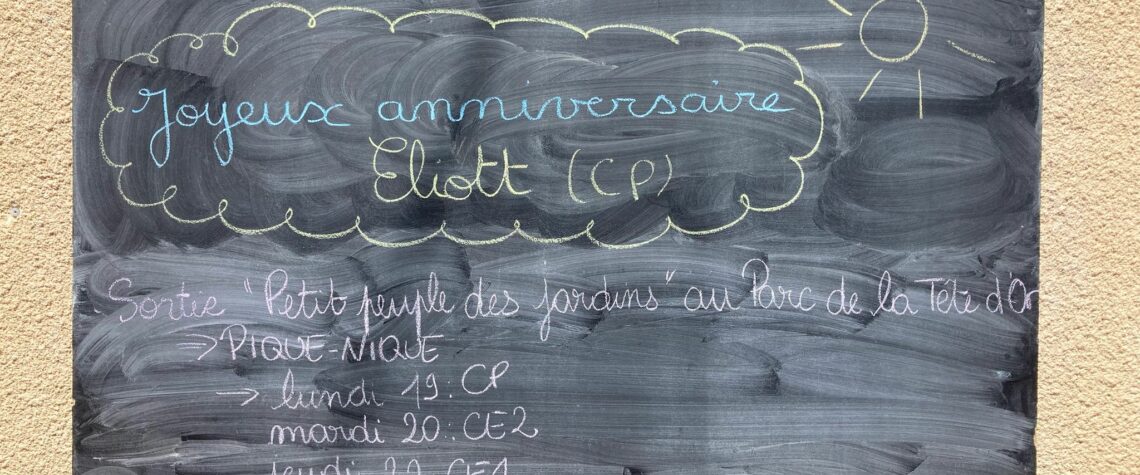 Joyeux anniversaire
Eliott (CP)
Sortie "Petit peuple des jardins" au Parc de la Tête d'Or
⇒ PIQUE-NIQUE
→ lundi 19 : CP
mardi 20 : CE2
jeudi 22 CE1